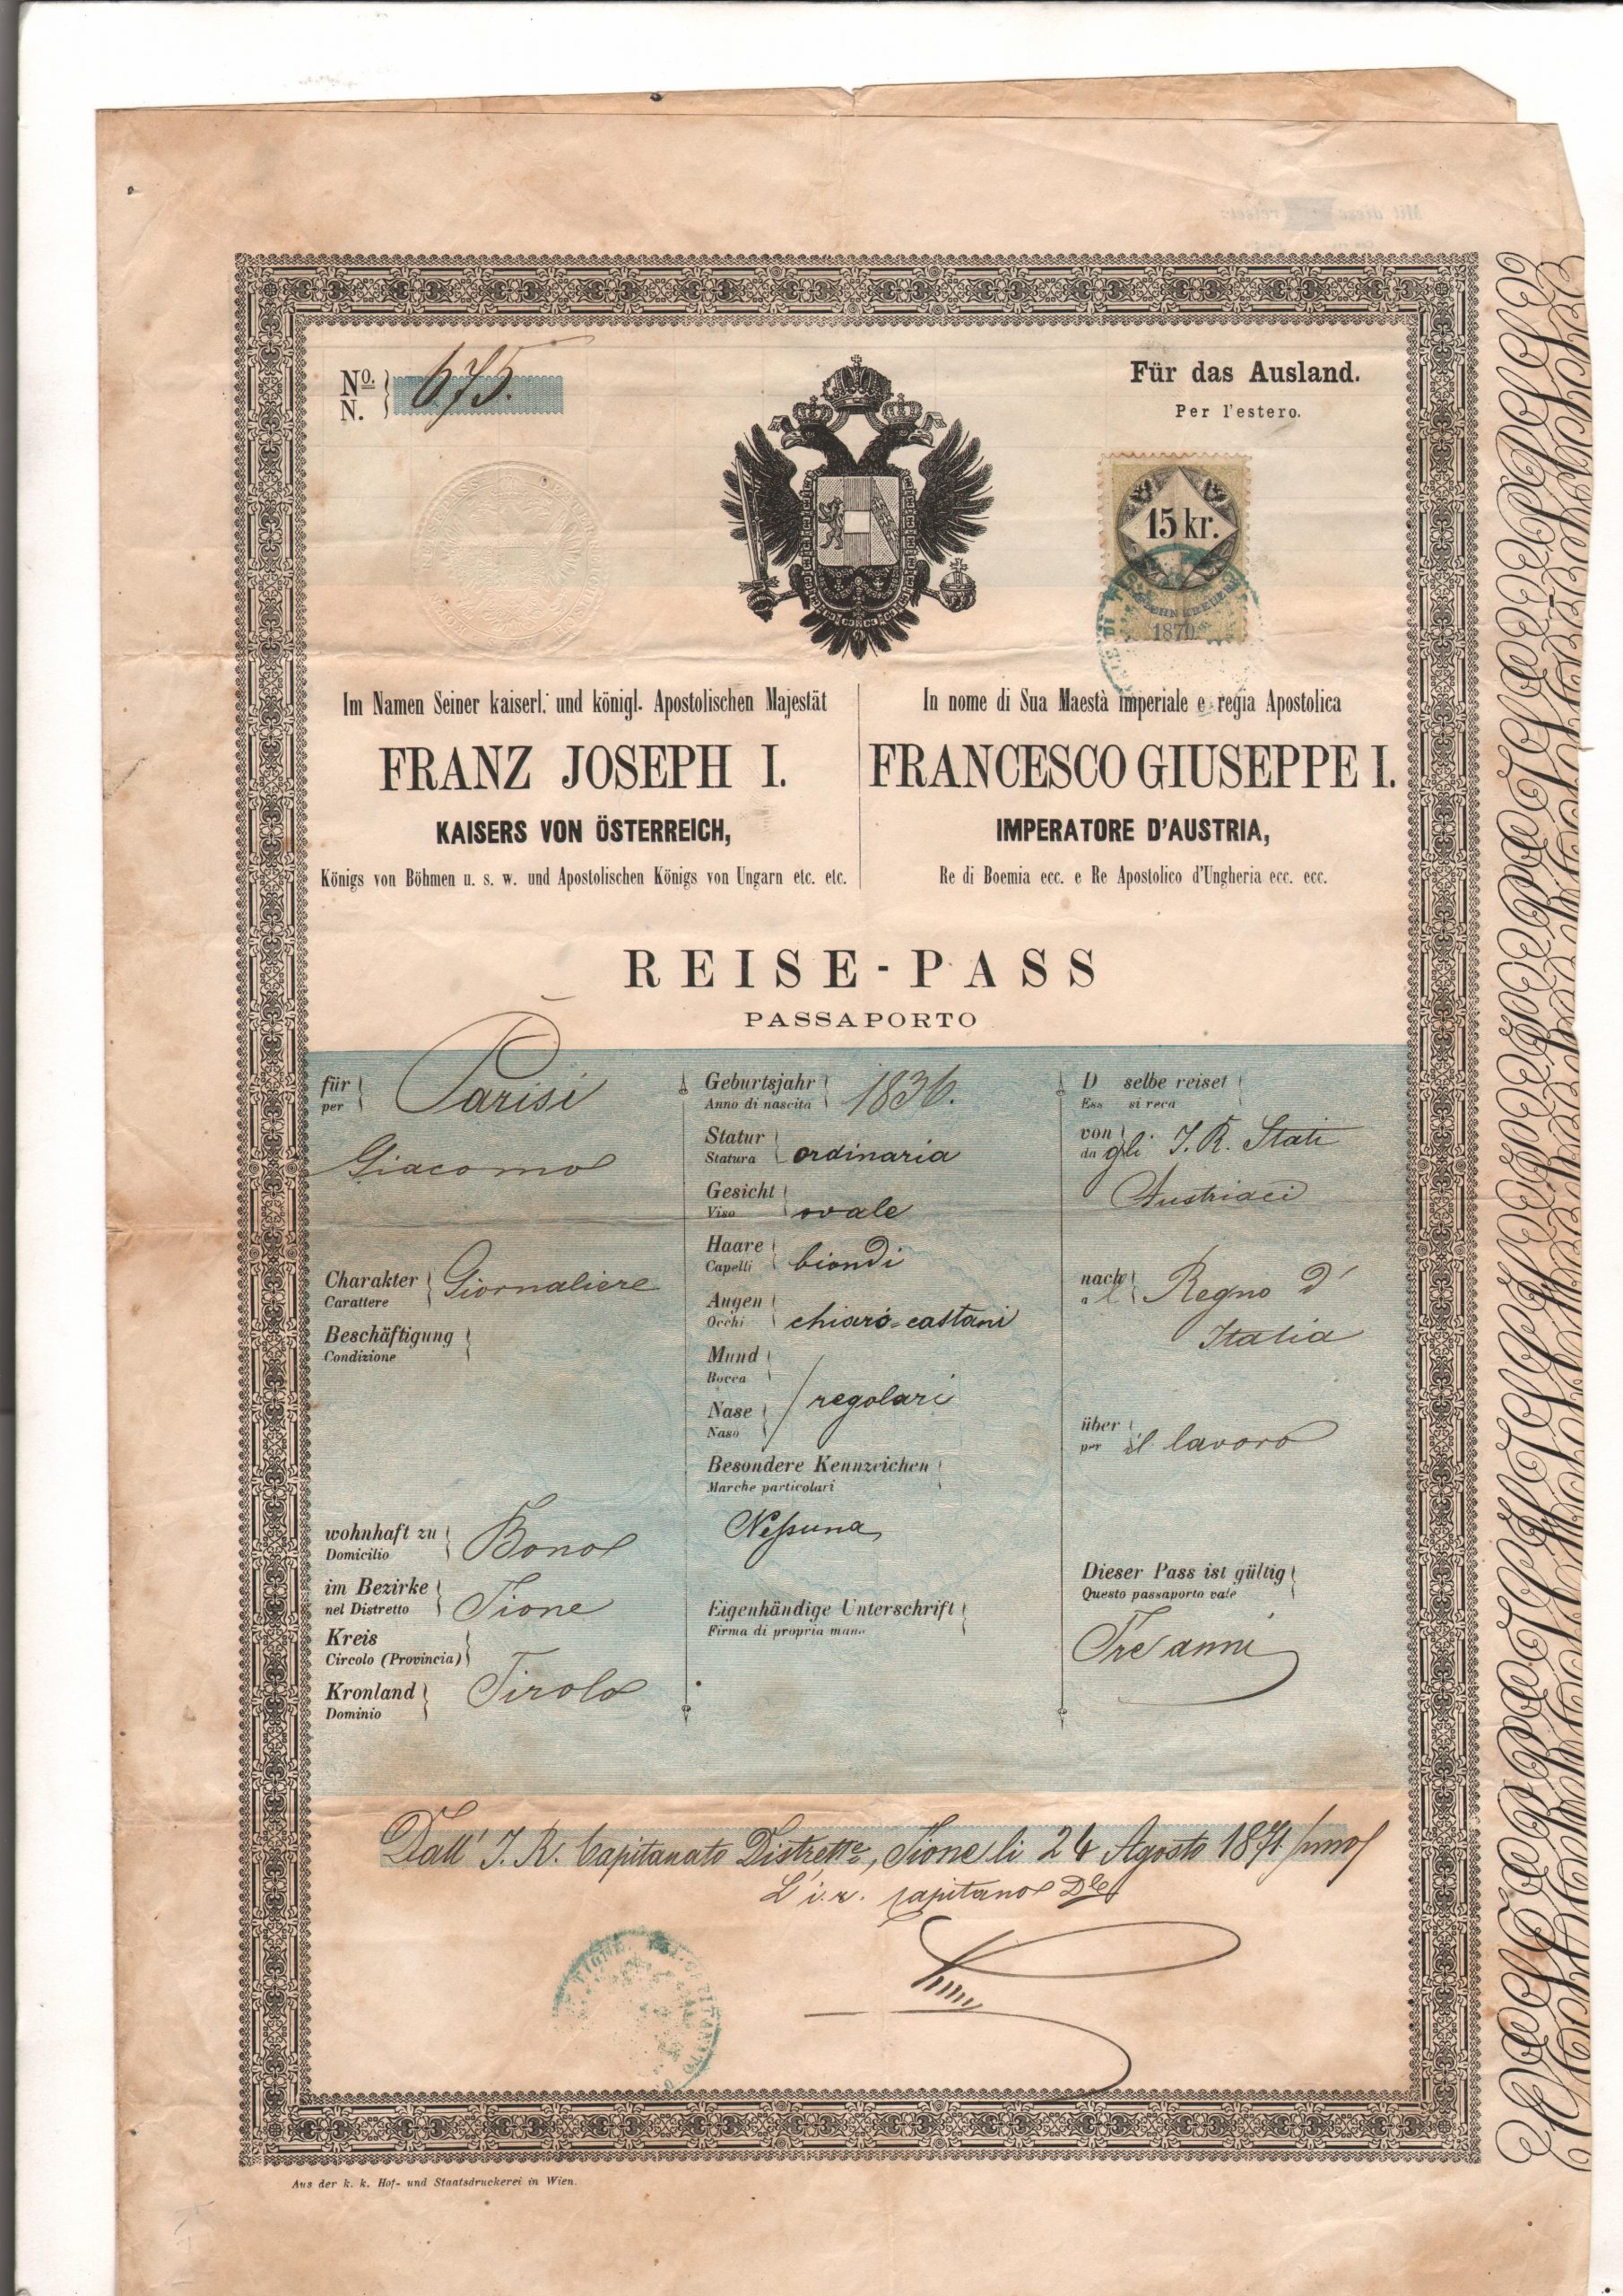 Nº. 675.
N.
Für das Ausland.
Per l'estero.
15 kr.
1870
Im Namen Seiner kaiserl. und königl. Apostolischen Majestät
FRANZ JOSEPH I.
KAISERS VON ÖSTERREICH,
Königs von Böhmen u. s. w. und Apostolischen Königs von Ungarn etc. etc.
In nome di Sua Maestà imperiale e regia Apostolica
FRANCESCO GIUSEPPE I.
IMPERATORE D'AUSTRIA,
Re di Boemia ecc. e Re Apostolico d'Ungheria ecc. ecc.
REISE-PASS
PASSAPORTO
für
per
Parisi
Giacomo
Charakter
Carattere
Giornaliere
Beschäftigung
Condizione
wohnhaft zu
Domicilio
Bono
im Bezirke
nel Distretto
Tione
Kreis
Circolo (Provincia)
Kronland
Dominio
Tirolo
Geburtsjahr
Anno di nascita
1836.
Statur
Statura
ordinaria
Gesicht
Viso
ovale
Haare
Capelli
biondi
Augen
Occhi
chiaro=castani
Mund
Bocca
Nase
Naso
regolari
Besondere Kennzeichen
Marche particolari
Nessuna
Eigenhändige Unterschrift
Firma di propria mano
D selbe reiset
Ess si reca
von
da gli I. R. Stati
Austriaci
nach
a l Regno d'
Italia
über
per il lavoro
Dieser Pass ist gültig
Questo passaporto vale
Tre anni
Dall' I. R. Capitanato Distrett.e, Tione li 24 Agosto 1871
L'i. r. Capitano
Aus der k. k. Hof- und Staatsdruckerei in Wien.